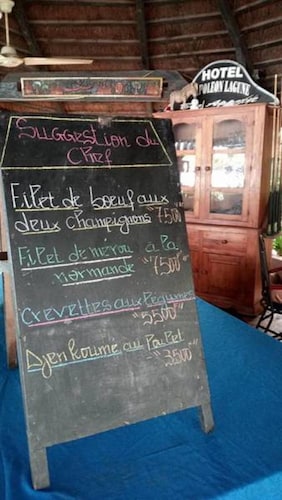 HOTEL
POLEON LAGUNE
Suggestion du
Chef
Filet de boeuf aux
deux champignons 7500"
Filet de mérou à la
normande "7500"
Crevettes aux légumes
"5500"
Djenkoume au Poulet
"3500"